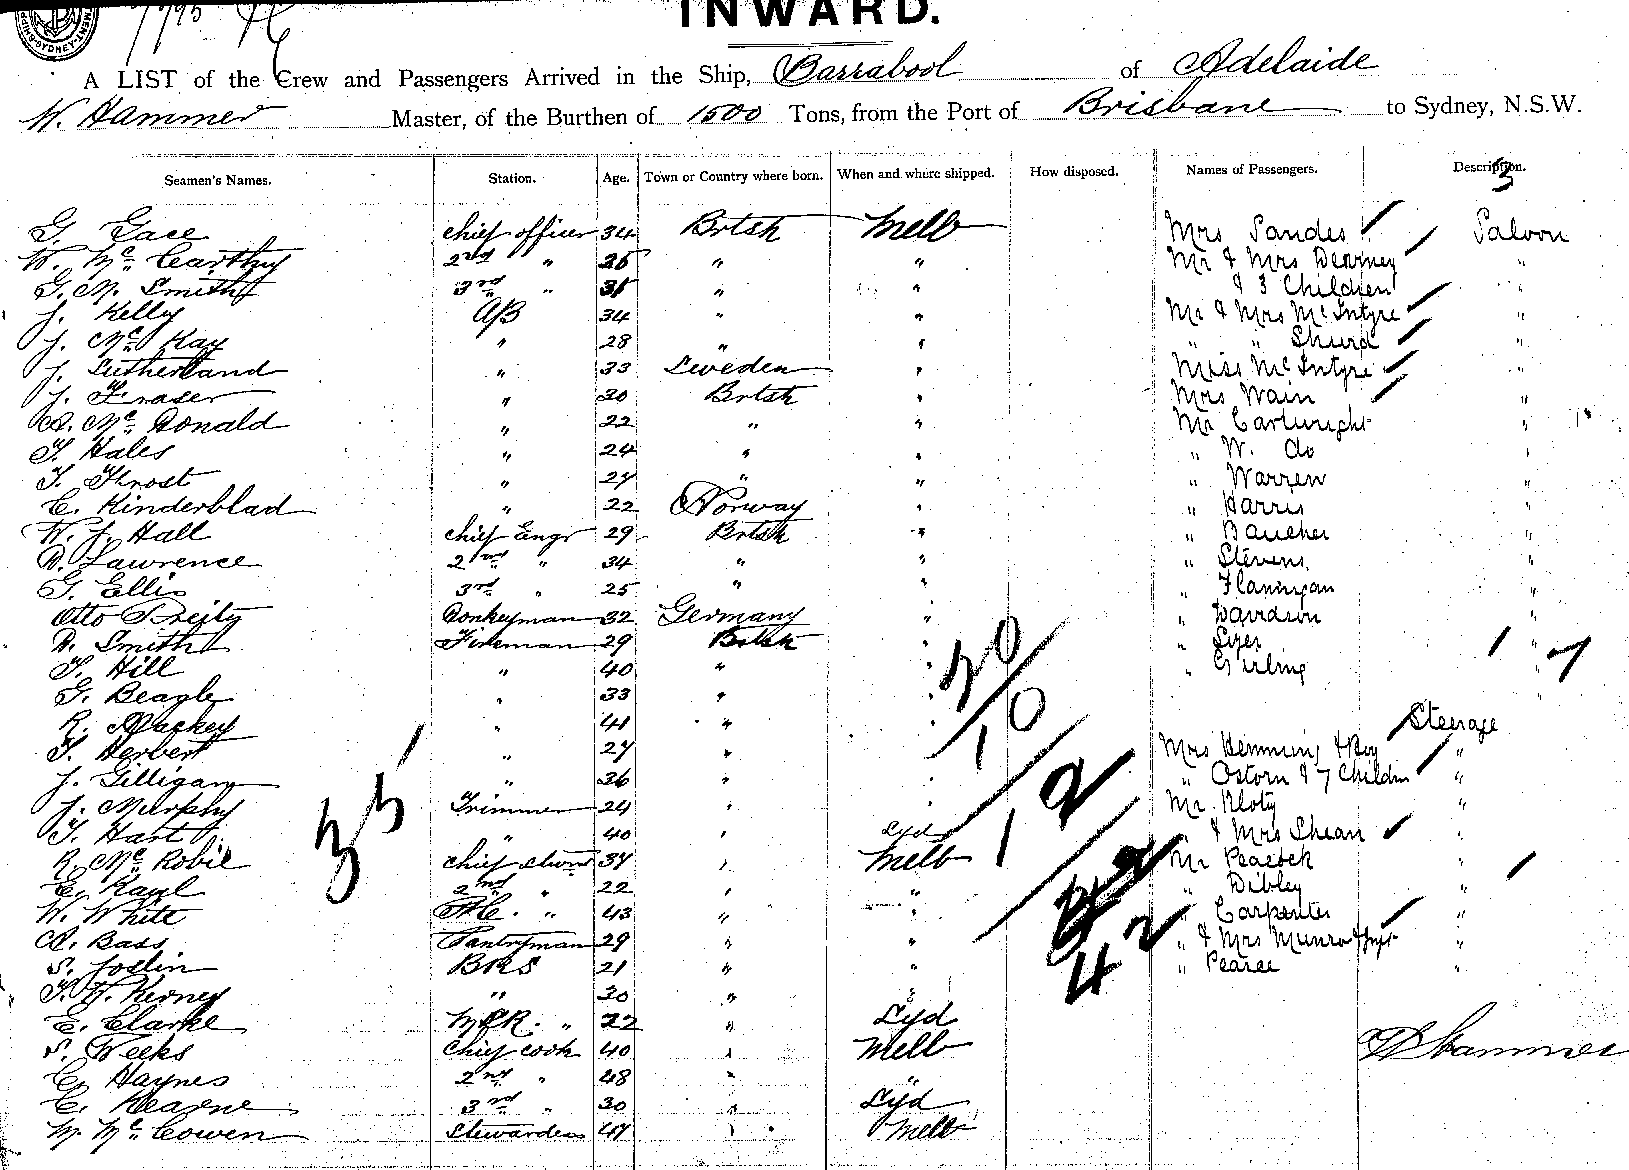 INWARD.
A LIST of the Crew and Passengers Arrived in the Ship, Barrabool of Adelaide
W. Hammer Master, of the Burthen of 1500 Tons, from the Port of Brisbane to Sydney, N.S.W.
Seamen's Names. Station. Age. Town or Country where born. When and where shipped. How disposed. Names of Passengers. Description.
G. Gace chief officer 34 Brtsh Melb Mrs Sandes Saloon
W. Mc Carthy 2nd " 25 " " Mr & Mrs Dearney "
G. M. Smith 3rd " " " & 3 Children
J. Kelly AB 34 " " Mr & Mrs McIntyre "
J. Mc Kay " 28 " " " "
J. Sutherland " 33 Sweden " Miss McIntyre "
J. Fraser " 20 Brtsh " Mrs Wain "
A. Mc Donald " 22 " " Mr Cartwright "
T. Hales " 24 " " " W. do "
T. Throst " 27 " " " Warren "
C. Kinderblad " 22 Norway " " Harris "
W. J. Hall chief Engr 29 Brtsh " " "
D. Lawrence 2nd " 34 " " " Stevens "
G. Ellis 3rd " 25 " " " Flannigan "
Otto Donkeyman 32 Germany " " Davidson "
D. Smith Fireman 29 Brtsh " " "
T. Hill " 40 " " " Girling "
G. Beagle " 33 " "
R. Mackey " 41 " " Steerage
T. Herbert " 27 " " Mrs Hemming & Boy "
J. Gilligan " 36 " " " Osborn & 7 Childrn "
J. Murphy Trimmer 24 " " Mr Kloty "
T. Hart " 40 " Syd " & Mrs Shean "
R. Mc Robie chief Stwrd 37 " Melb Mr Peacock "
E. Kaul 2nd " 22 " " " Dibley "
W. White F.C. " 43 " " " Carpenter "
A. Bass Pantryman 29 " " " & Mrs Munro & Inft "
S. Joslin BRS 21 " " " Pearce "
T. W. Kerney " 30 " "
E. Clarke M.S.R. " 22 " Syd
S. Weeks Chief cook 40 " Melb W Hammer
C. Haynes 2nd " 48 " "
C. Kearne 3rd " 30 " Syd
M. Mc Cowen Stewardess 47 " Melb
35
30
10
1 2
42